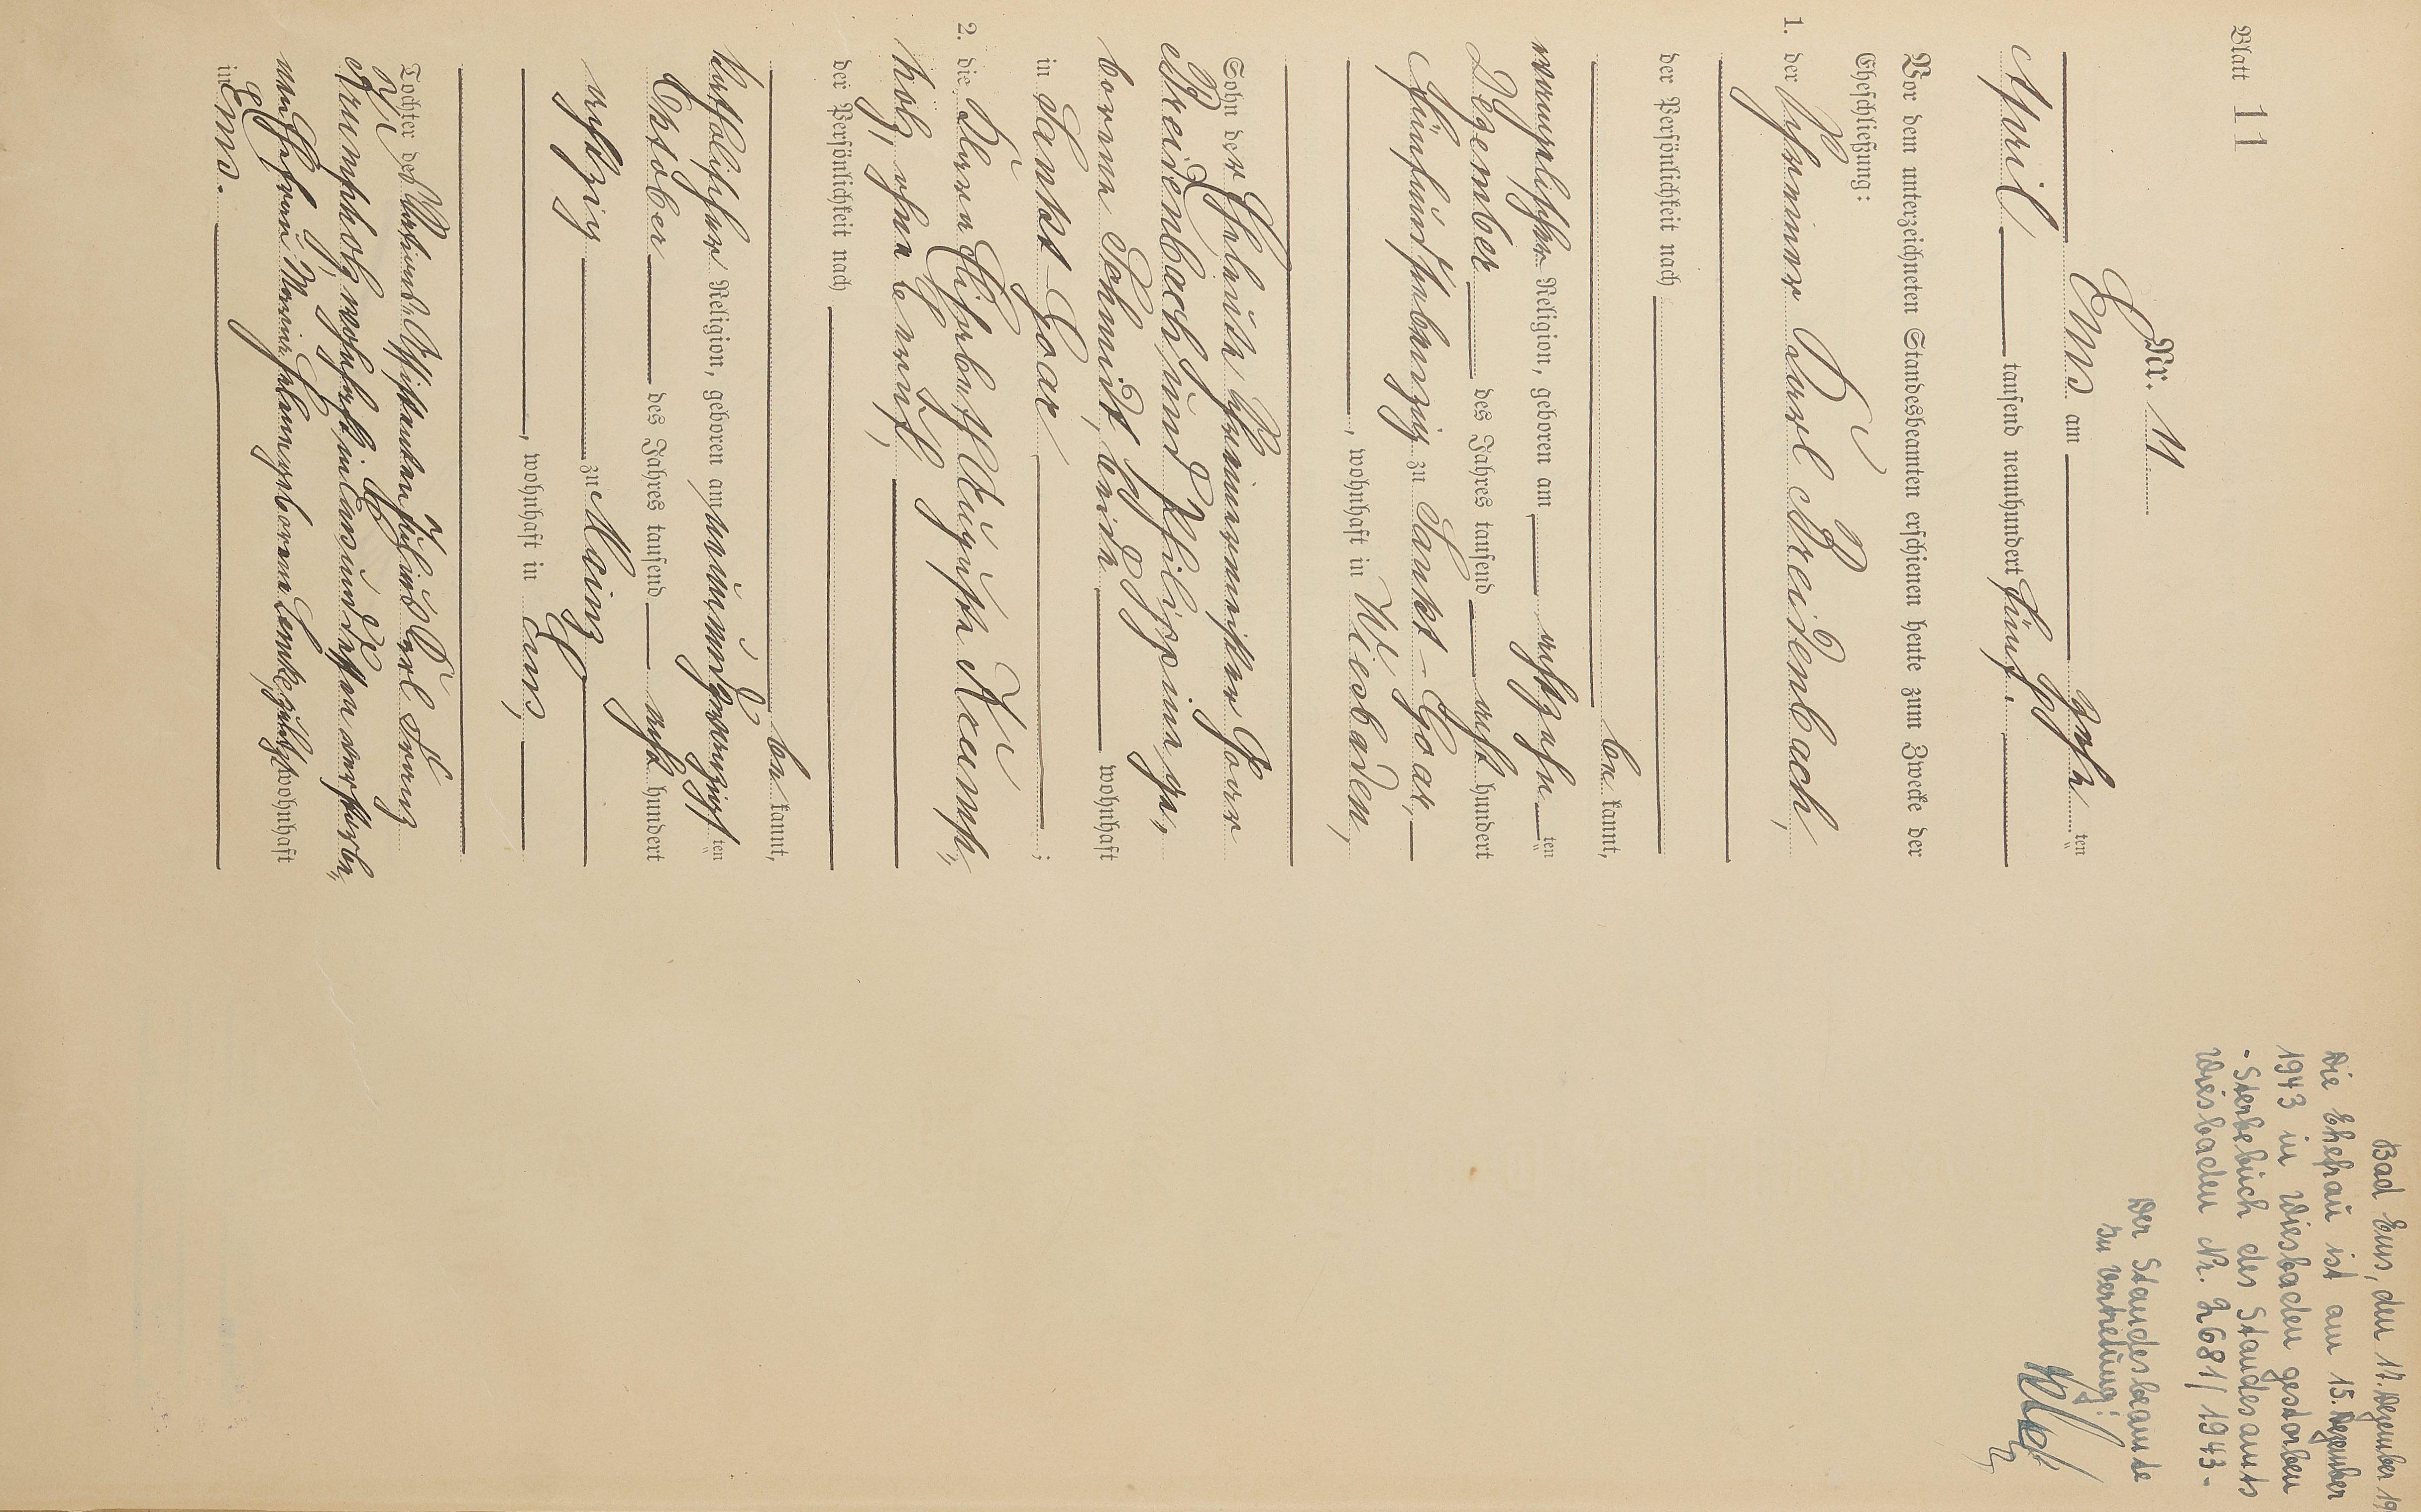 Blatt 11
Nr. 11
Ems am zehn ten
April tausend neunhundert fünf.
Vor dem unterzeichneten Standesbeamten erschienen heute zum Zwecke der
Eheschließung:
1. der Schreiner Karl Breidenbach,
der Persönlichkeit nach
be kannt,
evangelischer Religion, geboren am achtzehn ten
Dezember des Jahres tausend acht hundert
fünfundsiebenzig zu Sankt-Goar,
, wohnhaft in Wiesbaden,
Sohn der Eheleute Schreinermeister
Breidenbach und Philippine ge-
borene Schmidt, beide wohnhaft
in Sankt-Goar ;
2. die Klara Elisabeth Auguste Krump-
holz, ohne Beruf,
der Persönlichkeit nach
be kannt,
katholischer Religion, geboren am neunundzwanzigsten
Oktober des Jahres tausend acht hundert
achtzig zu Mainz
, wohnhaft in Ems,
Tochter des Stations-Assistenten Julius Karl Franz
Krumpholz wohnhaft in Ems und dessen verstorbe-
nen Ehefrau geborene Lemke, zuletzt wohnhaft
in Ems.
Bad Ems, den 17. Dezember 19
Die Ehefrau ist am 15. Dezember
1943 in Wiesbaden gestorben
- Sterbebuch des Standesamts
Wiesbaden Nr. 2681/1943-
Der Standesbeamte
In Vertretung: